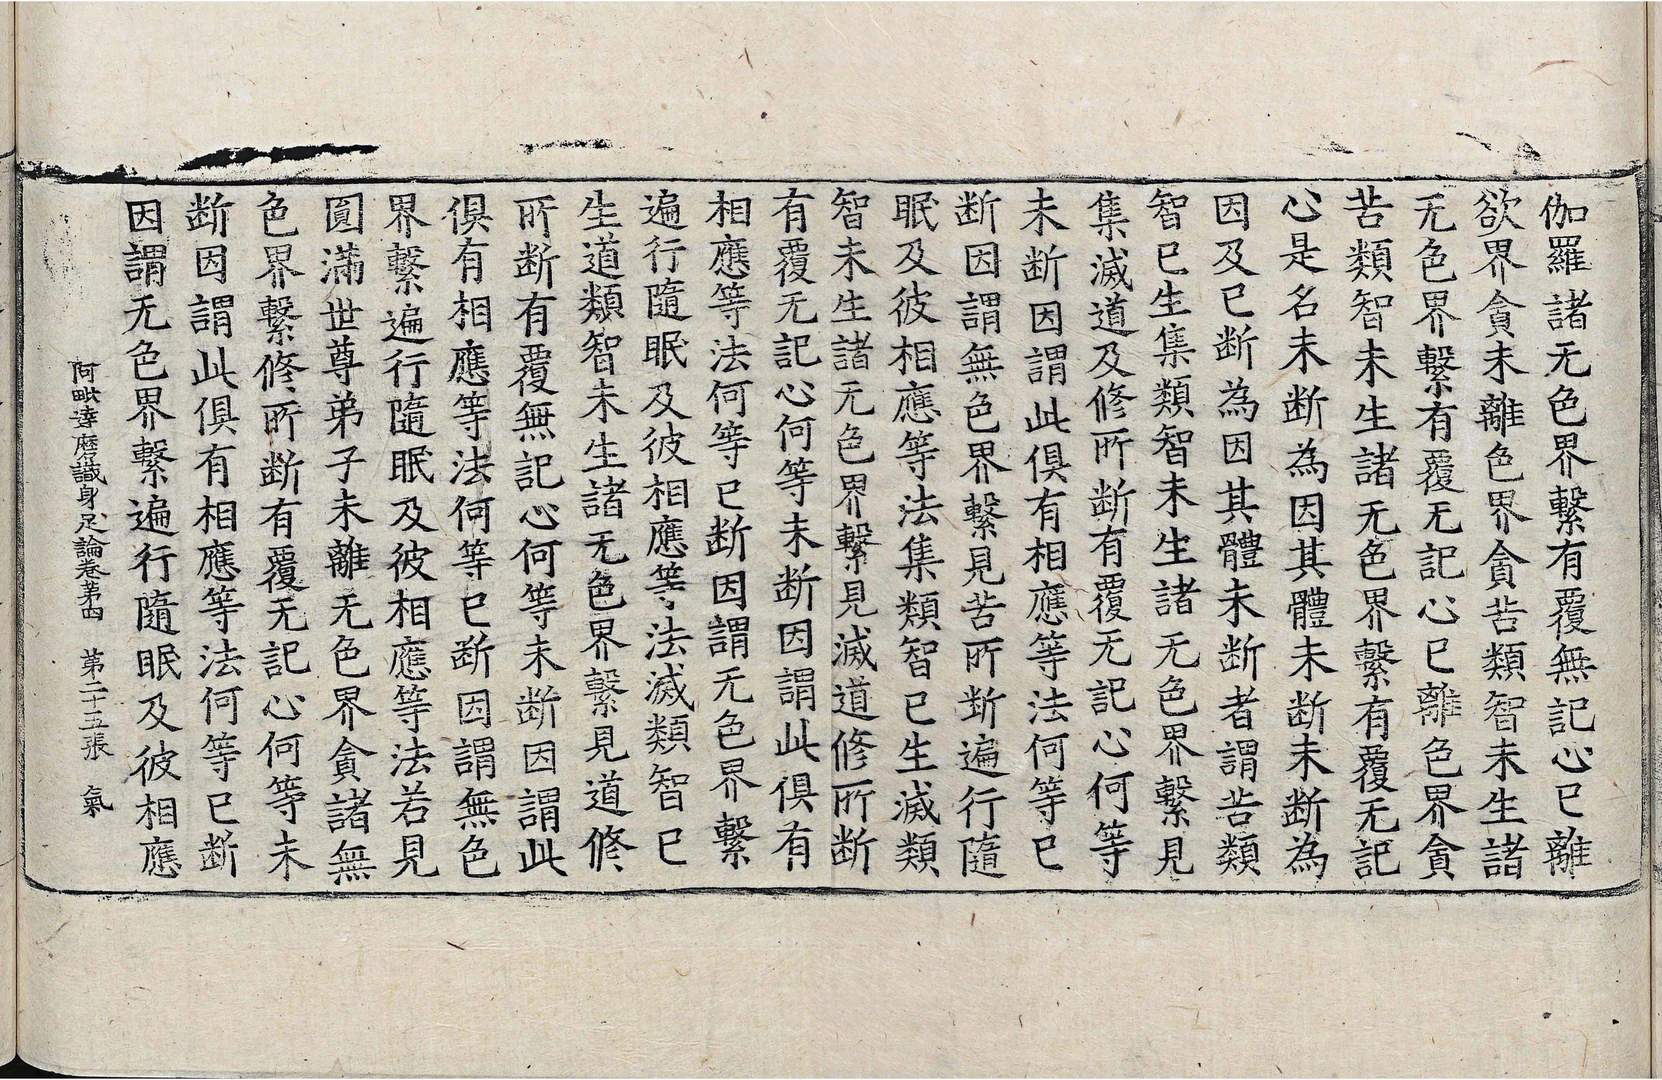 伽羅諸无色界繫有覆無記心已離
欲界貪未離色界貪苦類智未生諸
无色界繫有覆无記心已離色界貪
苦類智未生諸无色界繫有覆无記
心是名未断為因其體未断未断為
因及已断為因其體未断者謂苦類
智已生集類智未生諸无色界繫見
集滅道及修所断有覆无記心何等
未断因謂此俱有相應等法何等已
断因謂無色界繫見苦所断遍行隨
眠及彼相應等法集類智已生滅類
智未生諸无色界繫見滅道修所断
有覆无記心何等未断因謂此俱有
相應等法何等已断因謂无色界繫
遍行隨眠及彼相應等法滅類智已
生道類智未生諸无色界繫見道修
所断有覆無記心何等未断因謂此
俱有相應等法何等已断因謂無色
界繫遍行隨眠及彼相應等法若見
圓滿世尊弟子未離无色界貪諸無
色界繫修所断有覆无記心何等未
断因謂此俱有相應等法何等已断
因謂无色界繫遍行隨眠及彼相應
阿毗達磨識身足論卷第四　第二十五張　氣